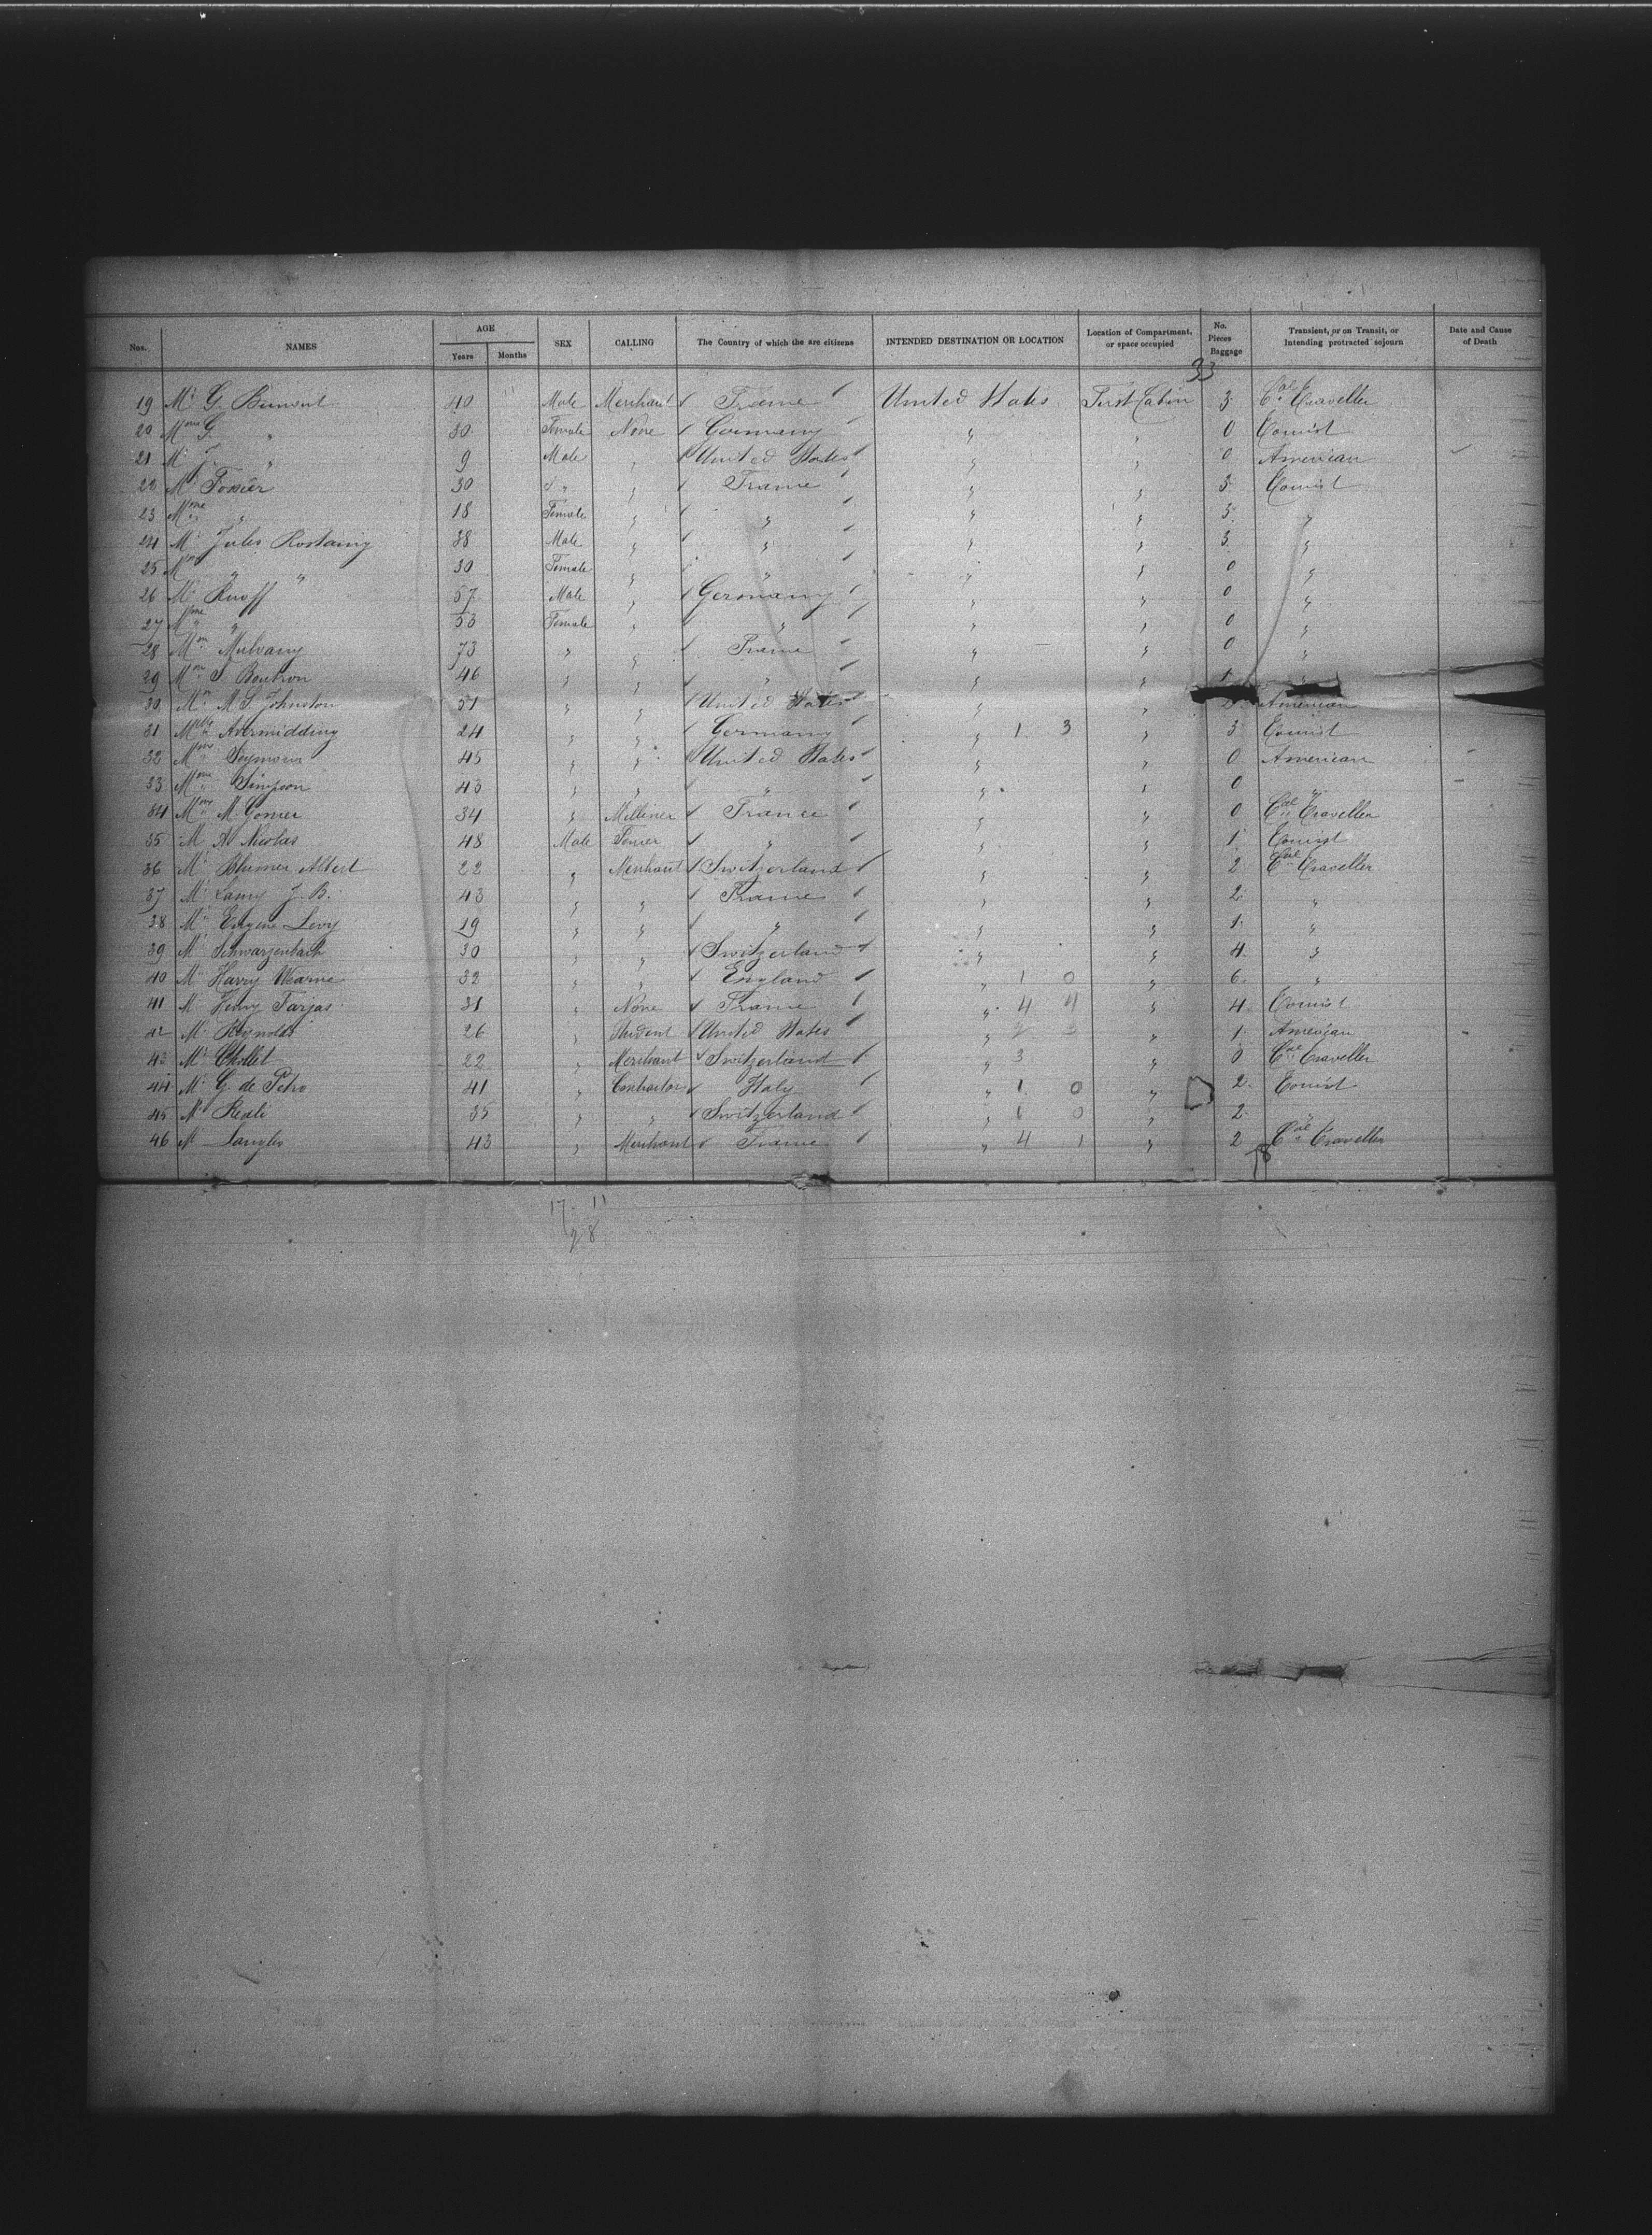 Nos. NAMES AGE Years Months SEX CALLING The Country of which the are citizens INTENDED DESTINATION OR LOCATION Location of Compartment, or space occupied No. Pieces Baggage Transient, or on Transit, or Intending protracted sojourn Date and Cause of Death
33
19 Mr G. 40 Male Merchant France United States First Cabin 3 Cal Traveller
20 Mme G. " 30 Female None Germany " " 0 Tourist
21 Mr J. " 9 Male " United States " " 0 American
22 Mr 30 " " France " " 3 Tourist
23 Mme " 18 Female " " " " 3 "
24 Mr Jules Rostaing 38 Male " " " " 3 "
25 Mme " " 30 Female " " " " 0 "
26 Mr Ruoff 57 Male " Germany " " 0 "
27 Mme " 53 Female " " " " 0 "
28 Mme Mulvany 73 " " France " " 0 "
29 Mme S. Boutron 46 " " " " " 1 "
30 Mme M. S. Johnston 51 " " United States " " American
31 Mlle 24 " " Germany " 1 3 " 3 Tourist
32 Mme Seymour 45 " " United States " " 0 American
33 Mme Simpson 43 " " " " " 0 "
34 Mme M. Gomer 34 " Milliner France " " 0 Cal Traveller
35 M. A. Nicolas 48 Male " " " 1 Tourist
36 Mr Blumer Albert 22 " Merchant Switzerland " " 2 Cal Traveller
37 Mr Lamy J. B. 43 " " France " " 2 "
38 Mr Eugene Levy 19 " " " " " 1 "
39 Mr Schwarzenbach 30 " " Switzerland " " 4 "
40 Mr Harry Wearne 32 " " England " 1 0 " 6 "
41 Mr Henry Farjas 31 " None France " 4 4 " 4 Tourist
42 Mr Reynolds 26 " Student United States " " 1 American
43 Mr Chollet 22 " Merchant Switzerland " 3 " 0 Cal Traveller
44 Mr G. de Petro 41 " Contractor Italy " 1 0 " 2 Tourist
45 Mr Redli 35 " " Switzerland " 6 0 " 2 "
46 Mr 43 " Merchant France " 4 1 " 2 Cal Traveller
17 11
28